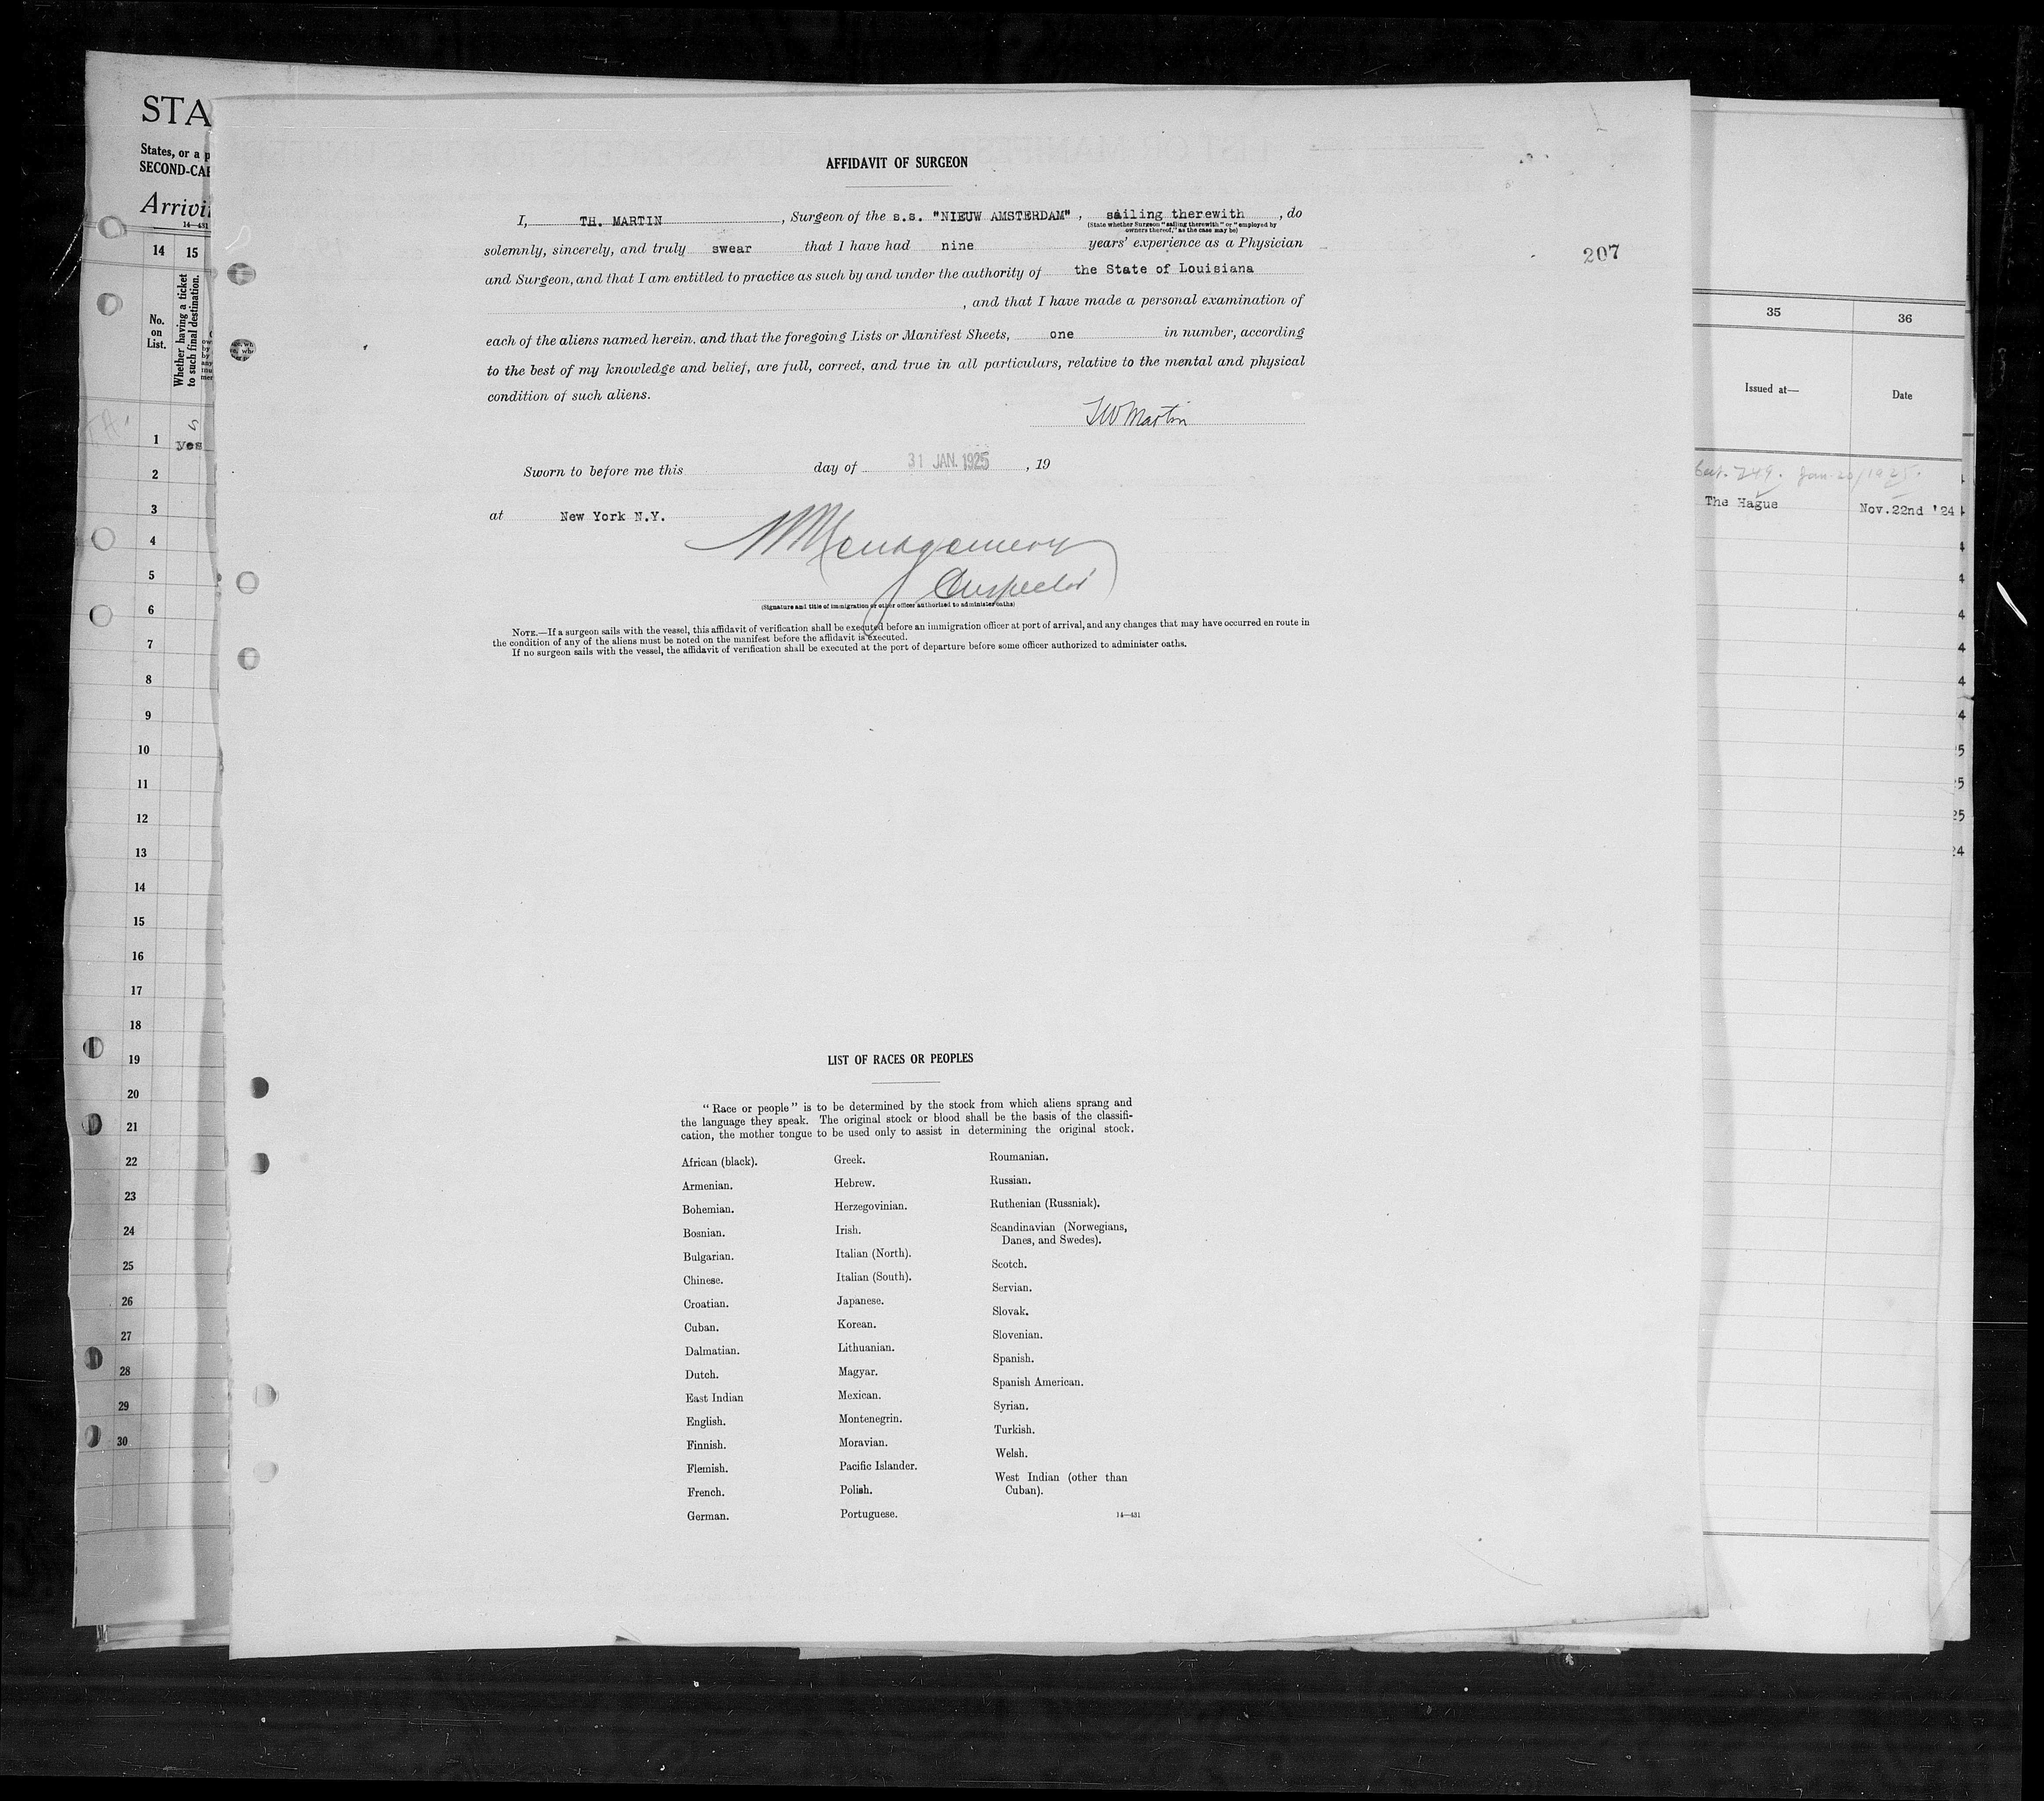 STA
States, or a p
SECOND-CAB
Arrivi
14—431
14 15
No.
on
List.
Whether having a ticket
to such final destination.
yes
1
2
3
4
5
6
7
8
9
10
11
12
13
14
15
16
17
18
19
20
21
22
23
24
25
26
27
28
29
30
AFFIDAVIT OF SURGEON
I, TH. MARTIN , Surgeon of the s.s. "NIEUW AMSTERDAM" , sailing therewith , do
(State whether Surgeon "sailing therewith" or "employed by
owners thereof," as the case may be)
solemnly, sincerely, and truly swear that I have had nine years' experience as a Physician
and Surgeon, and that I am entitled to practice as such by and under the authority of the State of Louisiana
, and that I have made a personal examination of
each of the aliens named herein, and that the foregoing Lists or Manifest Sheets, one in number, according
to the best of my knowledge and belief, are full, correct, and true in all particulars, relative to the mental and physical
condition of such aliens.
TW Martin
Sworn to before me this day of 31 JAN. 1925 , 19
at New York N.Y.
Montgomery
Inspector
(Signature and title of immigration or other officer authorized to administer oaths)
NOTE.—If a surgeon sails with the vessel, this affidavit of verification shall be executed before an immigration officer at port of arrival, and any changes that may have occurred en route in
the condition of any of the aliens must be noted on the manifest before the affidavit is executed.
If no surgeon sails with the vessel, the affidavit of verification shall be executed at the port of departure before some officer authorized to administer oaths.
207
LIST OF RACES OR PEOPLES
"Race or people" is to be determined by the stock from which aliens sprang and
the language they speak. The original stock or blood shall be the basis of the classifi-
cation, the mother tongue to be used only to assist in determining the original stock.
African (black).
Armenian.
Bohemian.
Bosnian.
Bulgarian.
Chinese.
Croatian.
Cuban.
Dalmatian.
Dutch.
East Indian
English.
Finnish.
Flemish.
French.
German.
Greek.
Hebrew.
Herzegovinian.
Irish.
Italian (North).
Italian (South).
Japanese.
Korean.
Lithuanian.
Magyar.
Mexican.
Montenegrin.
Moravian.
Pacific Islander.
Polish.
Portuguese.
Roumanian.
Russian.
Ruthenian (Russniak).
Scandinavian (Norwegians,
Danes, and Swedes).
Scotch.
Servian.
Slovak.
Slovenian.
Spanish.
Spanish American.
Syrian.
Turkish.
Welsh.
West Indian (other than
Cuban).
14—431
35 36
Issued at— Date
Jan. 20/1925.
The Hague Nov.22nd '24
4
4
4
4
4
4
5
5
25
24